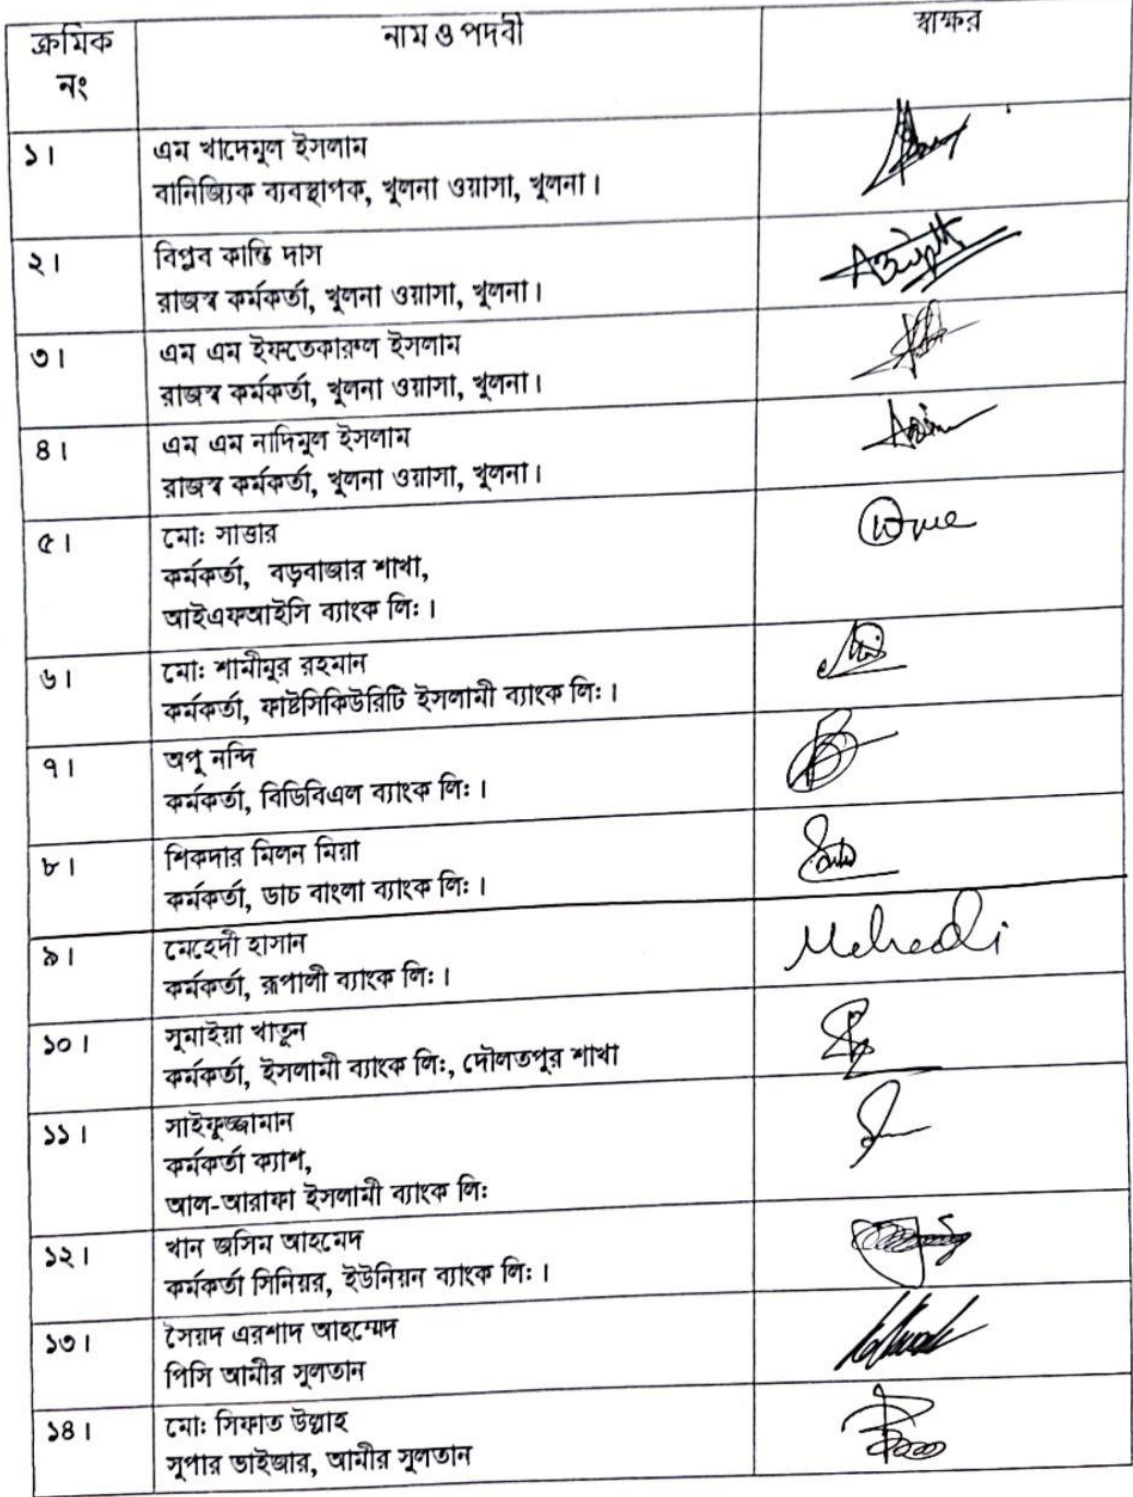 ক্রমিক নং
নাম ও পদবী
স্বাক্ষর
১।
এম খাদেমুল ইসলাম
বানিজ্যিক ব্যবস্থাপক, খুলনা ওয়াসা, খুলনা।
২।
বিপ্লব কান্তি দাস
রাজস্ব কর্মকর্তা, খুলনা ওয়াসা, খুলনা।
৩।
এম এম ইফতেকারুল ইসলাম
রাজস্ব কর্মকর্তা, খুলনা ওয়াসা, খুলনা।
৪।
এম এম নাদিমুল ইসলাম
রাজস্ব কর্মকর্তা, খুলনা ওয়াসা, খুলনা।
৫।
মো: সাত্তার
কর্মকর্তা, বড়বাজার শাখা,
আইএফআইসি ব্যাংক লি:।
৬।
মো: শামীমুর রহমান
কর্মকর্তা, ফাষ্টসিকিউরিটি ইসলামী ব্যাংক লি:।
৭।
অপু নন্দি
কর্মকর্তা, বিডিবিএল ব্যাংক লি:।
৮।
শিকদার মিলন মিয়া
কর্মকর্তা, ডাচ বাংলা ব্যাংক লি:।
৯।
মেহেদী হাসান
কর্মকর্তা, রূপালী ব্যাংক লি:।
Mehedi
১০।
সুমাইয়া খাতুন
কর্মকর্তা, ইসলামী ব্যাংক লি:, দৌলতপুর শাখা
১১।
সাইফুজ্জামান
কর্মকর্তা ক্যাশ,
আল-আরাফা ইসলামী ব্যাংক লি:
১২।
খান জসিম আহমেদ
কর্মকর্তা সিনিয়র, ইউনিয়ন ব্যাংক লি:।
১৩।
সৈয়দ এরশাদ আহম্মেদ
পিসি আমীর সুলতান
১৪।
মো: সিফাত উল্লাহ
সুপার ভাইজার, আমীর সুলতান